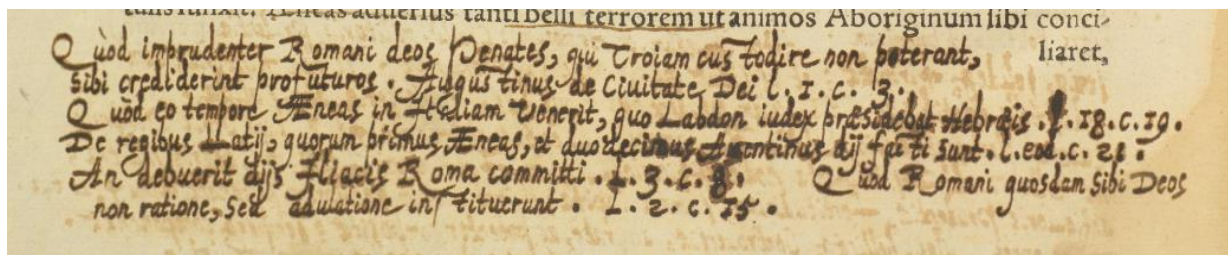 tanti belli terrorem ut animos Aboriginum sibi conci-
liaret,
Quòd imbrudenter Romani deos Penates, qui Troiam custodire non poterant,
sibi crediderint profuturos. Augustinus de Ciuitate Dei l. 1. c. 3.
Quòd eo tempore Æneas in Italiam venerit, quo Labdon iudex præsidebat Hebræis. l. 18. c. 19.
De regibus Latij, quorum primus Æneas, et duodecimus Auentinus dij facti sunt. l. eod. c. 21.
An debuerit dijs Iliacis Roma committi. l. 3. c. 8. Quòd Romani quosdam sibi Deos
non ratione, sed adulatione instituerunt. l. 2. c. 15.